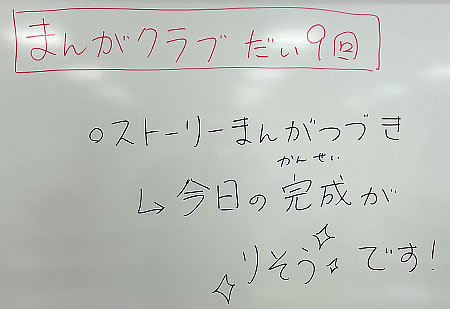 まんがクラブ だい9回
○ストーリーまんがつづき
かんせい
↳今日の完成が
りそうです!